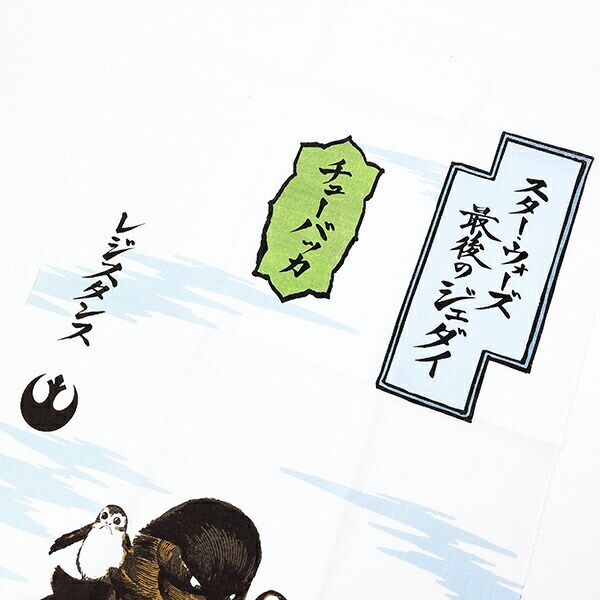 スター・ウォーズ
最後のジェダイ
チューバッカ
レジスタンス